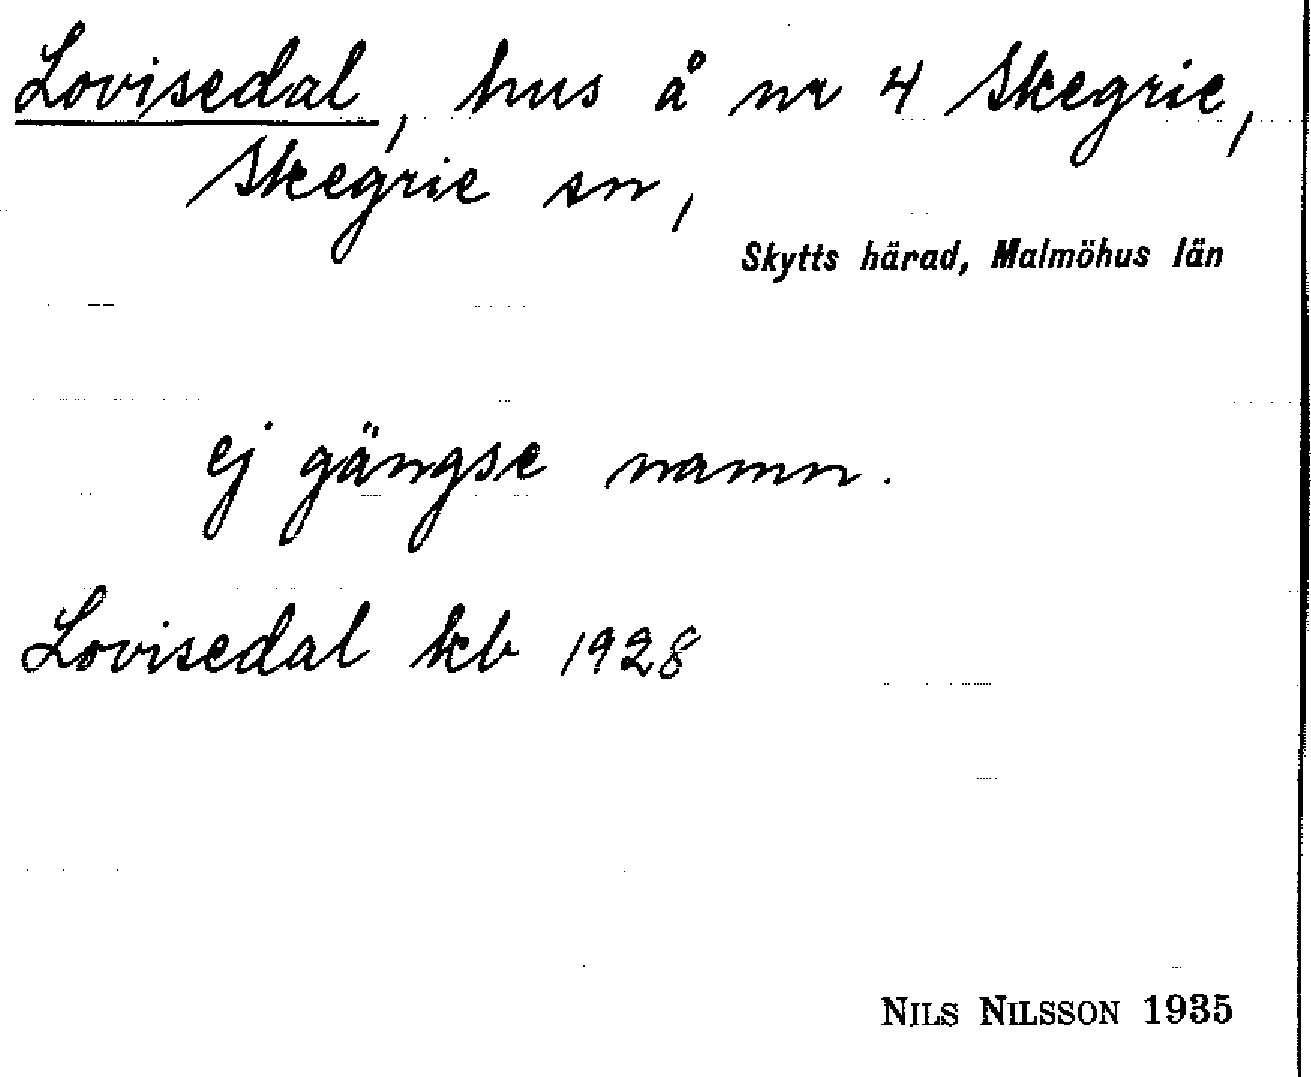 Lovisedal, hus å nr 4 Skegrie,
Skegrie sn,
Skytts härad, Malmöhus län
ej gängse namn.
Lovisedal kb 1928
NILS NILSSON 1935